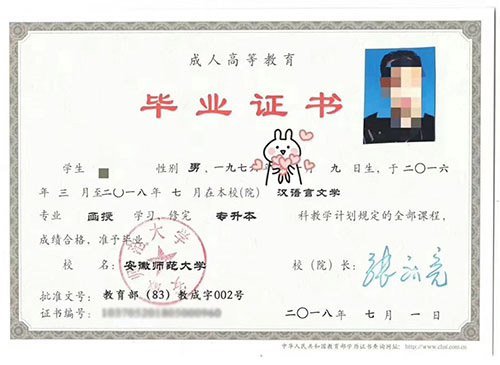 成人高等教育
毕业证书
学生 性别 男，一九七六年 九日生，于二〇一六
年三月至二〇一八年七月在本校(院) 汉语言文学
专业 函授 学习，修完 专升本 科教学计划规定的全部课程，
成绩合格，准予毕业。
校 名：安徽师范大学 校（院）长：
批准文号：教育部（83）教成字002号
证书编号：
二〇一八年 七月 一日
中华人民共和国教育部学历证书查询网址：http://www.chsi.com.cn